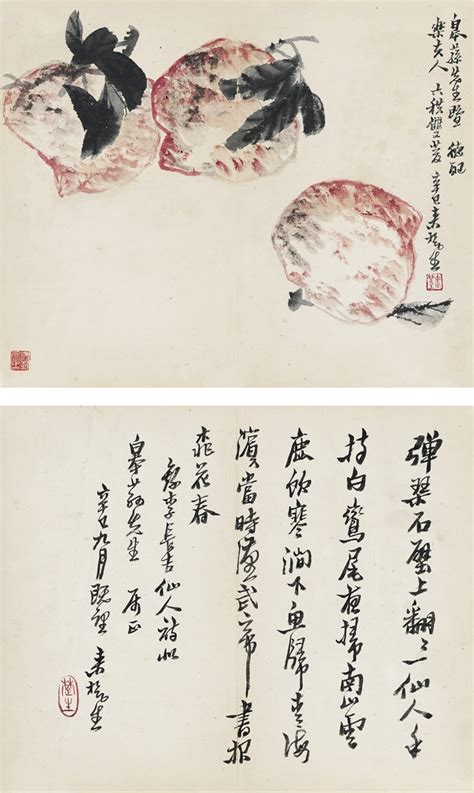 皋蓀先生暨 德配
夫人六秩雙慶 辛巳 来楚生
彈琴石壁上翻〻一仙人手
持白鸞尾夜掃南山雲
鹿飲寒澗下魚歸清海
濱當時漢武帝書報
桃花春
李長吉仙人詩似
皋蓀先生 属正
辛巳九月既望 来楚生